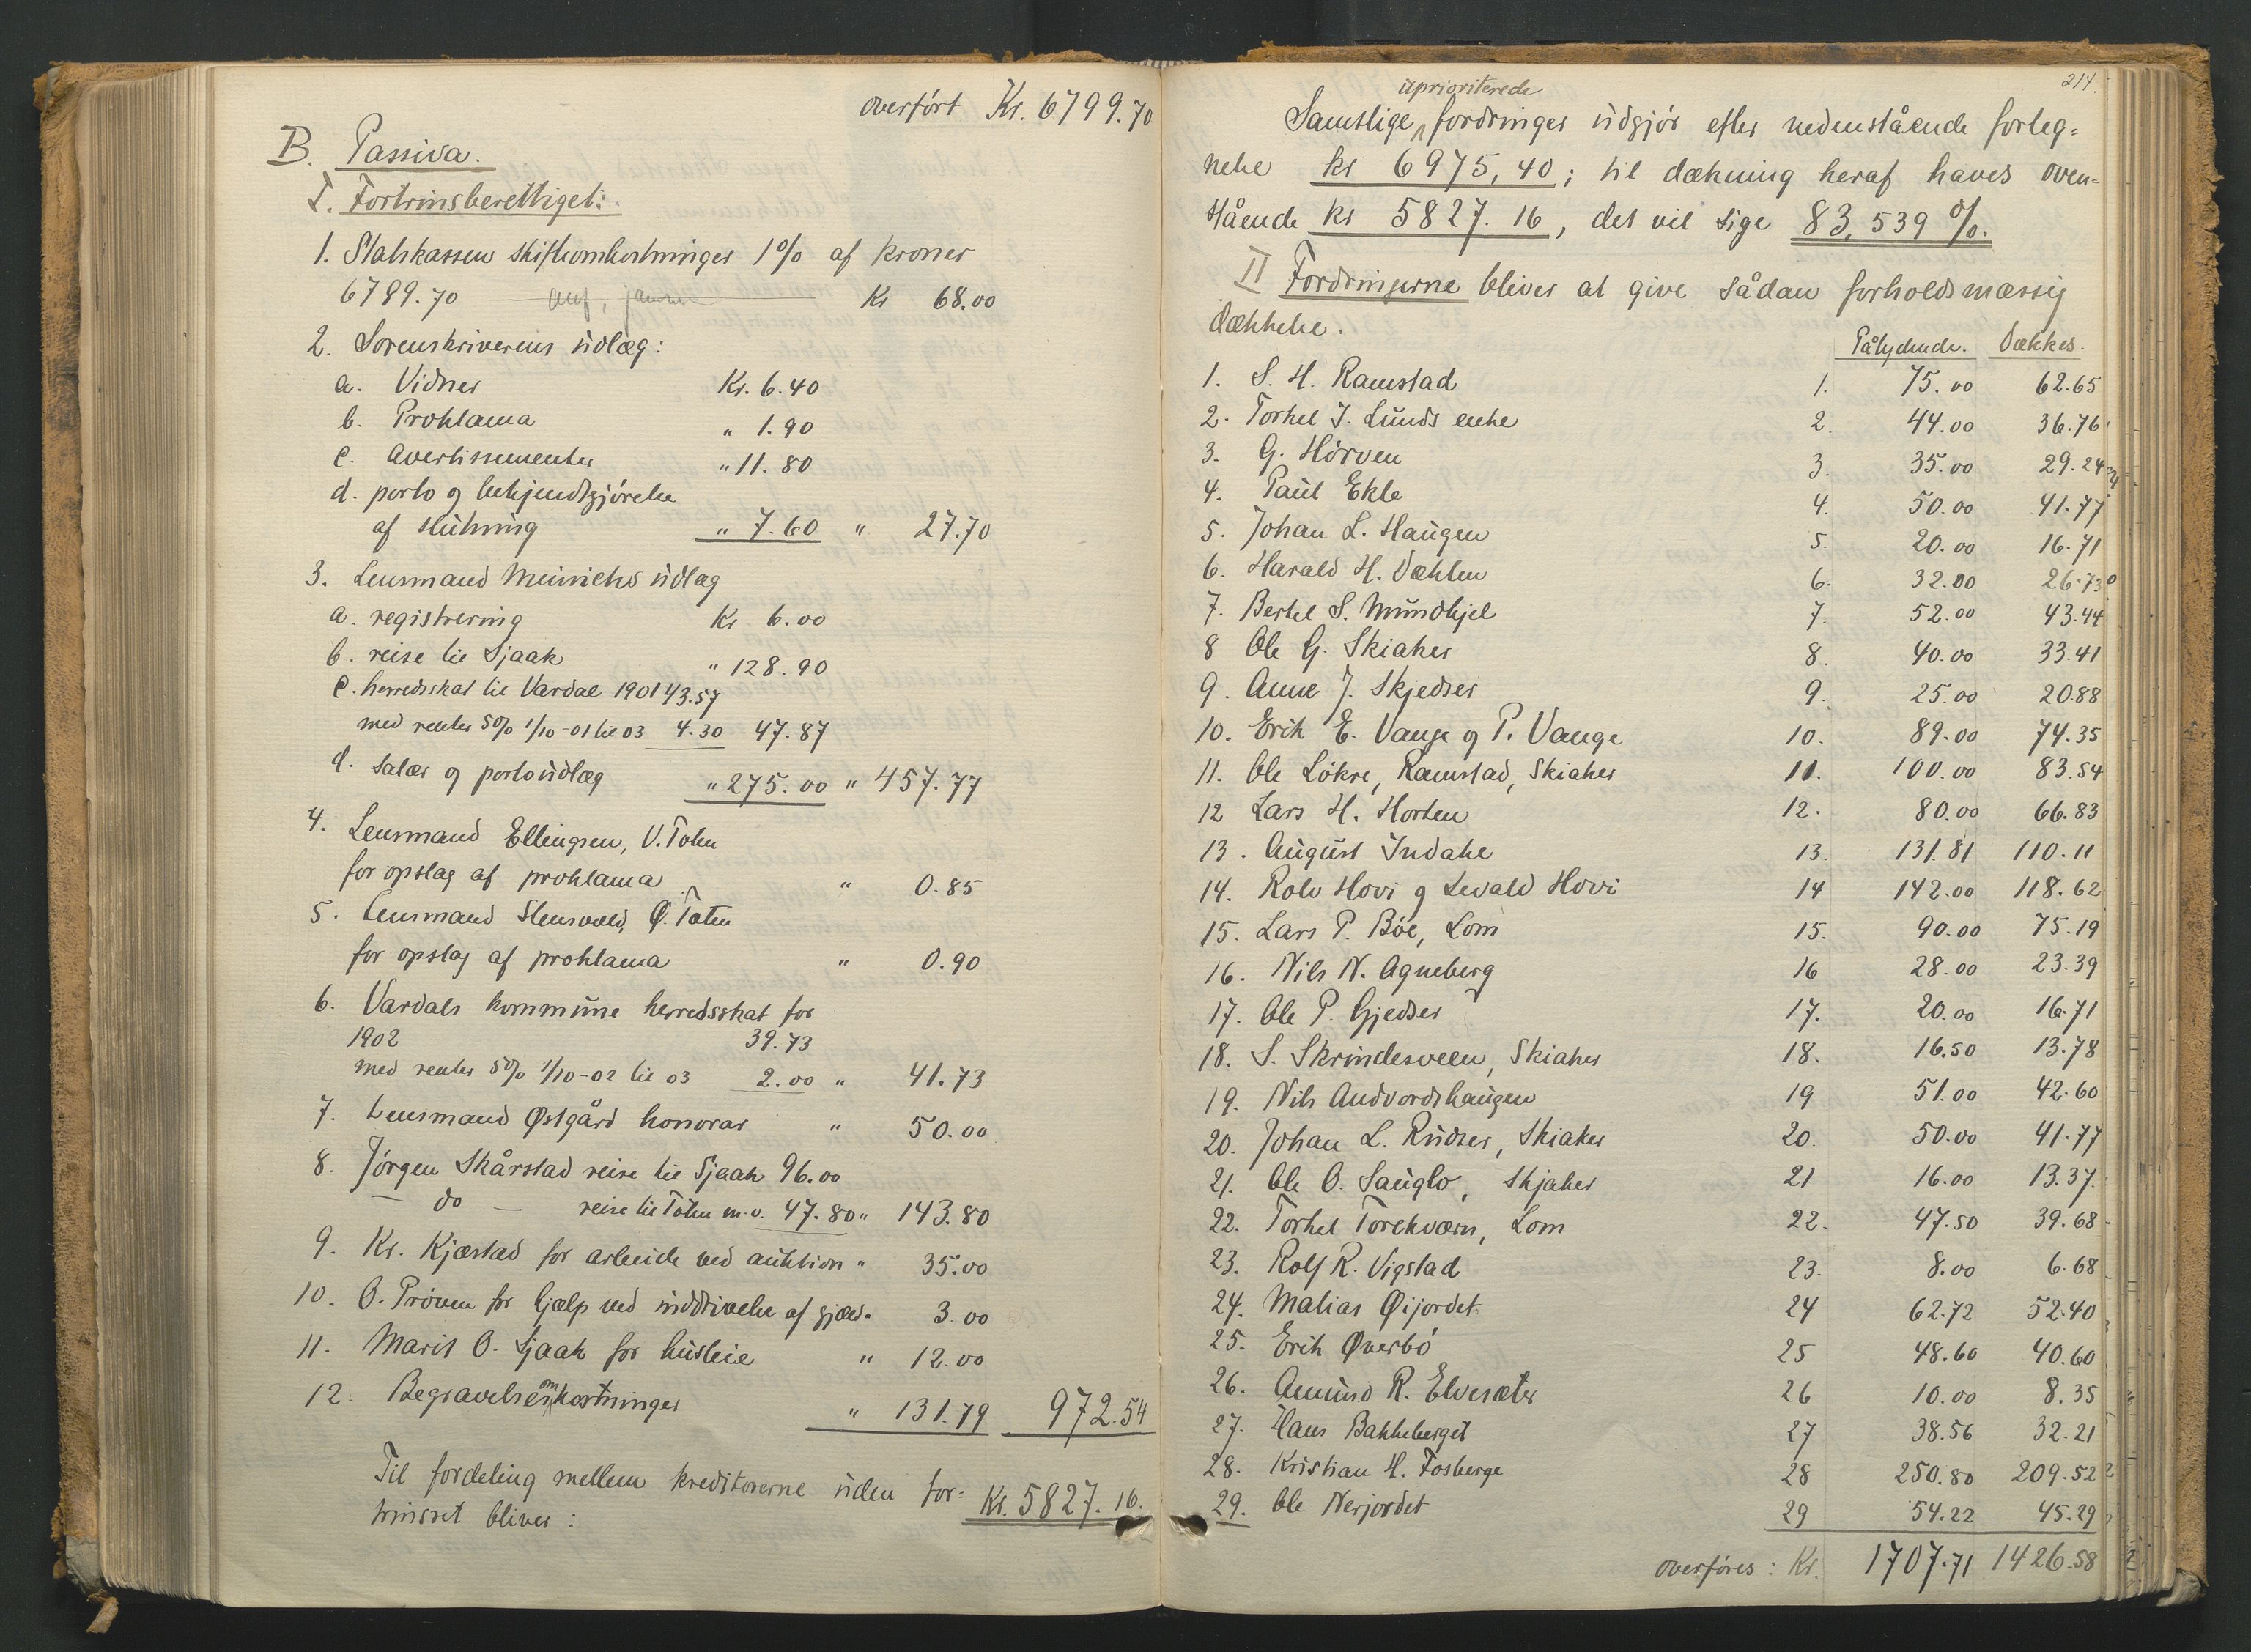 overført Kr. 6799.70
B. Passiva.
I. Fortrinsberettiget:
1. Statskassen skifteomkostninger 1% af kroner
6799.70 Kr 68.00
2. Sorenskriverens udlæg:
a. Vidner Kr. 6.40
b. Proklama " 1.90
c. Avertissementer " 11.80
d. porto og bekjendtgjørelse
af slutning " 7.60 " 27.70
3. Lensmand Meinichs udlæg
a. registrering Kr 6.00
b. reise til Sjaak " 128.90
c. herredsskat til Vardal 1901 43.57
med renter 5% 1/10-01 til 03 4.30 47.87
d. salær og portoudlæg " 275.00 " 457.77
4. Lensmand Ellingsen, V. Toten
for opslag af proklama " 0.85
5. Lensmand Stensvold, Ø. Toten
for opslag af proklama " 0.90
6. Vardals kommune herredsskat for
1902 39.73
med renter 5% 1/10-02 til 03 2.00 " 41.73
7. Lensmand Østgård honorar " 50.00
8. Jørgen Skårstad reise til Sjaak 96.00
— do — reise til Toten m.v. 47.80 " 143.80
9. Kr. Kjæstad for arbeide ved auktion " 35.00
10. O. Prøven for hjælp ved inddrivelse af gjæld " 3.00
11. Marit O. Sjaak for husleie " 12.00
12. Begravelsesomkostninger " 131.79 972.54
Til fordeling mellem kreditorerne uden for=
trinsret bliver: Kr. 5827.16.
214.
uprioriterede
Samtlige fordringer udgjør efter nedenstående forteg=
nelse kr 6975,40; til dækning heraf haves oven=
stående kr 5827.16, det vil sige 83,539 %.
II Fordringerne bliver at give sådan forholdsmæssig
dækkelse.
Pålydende. Dækkes.
1. S. H. Ramstad 1. 75.00 62.65
2. Torkel J. Lunds enke 2. 44.00 36.76
3. G. Hörven 3. 35.00 29.24
4. Paul Ekle 4. 50.00 41.77
5. Johan L. Haugen 5. 20.00 16.71
6. Harald H. Dæhlen 6. 32.00 26.73
7. Bertel S. Mundhjel 7. 52.00 43.44
8 Ole G. Skiaker 8. 40.00 33.41
9. Anne J. Skjedser 9. 25.00 20.88
10. Erik E. Vange og P. Vange 10. 89.00 74.35
11. Ole Løkre, Ramstad, Skiaker 11. 100.00 83.54
12 Lars H. Horten 12. 80.00 66.83
13. August Indahl 13. 131.81 110.11
14. Rolv Hovi og Sevald Hovi 14 142.00 118.62
15. Lars P. Bøe, Lom 15. 90.00 75.19
16. Nils N. Agneberg 16 28.00 23.39
17. Ole P. Gjedser 17. 20.00 16.71
18. S. Skrindesveen, Skiaker 18. 16.50 13.78
19. Nils Andvordshaugen 19 51.00 42.60
20. Johan L. Rudser, Skiaker 20. 50.00 41.77
21. Ole O. Sauglo, Skjaker 21 16.00 13.37
22. Torkel Torekværn, Lom 22. 47.50 39.68
23. Rolf R. Vigstad 23. 8.00 6.68
24. Matias Øijordet 24 62.72 52.40
25. Erik Øverbö 25 48.60 40.60
26. Amund R. Elvesæter 26 10.00 8.35
27. Hans Bakkeberget 27 38.56 32.21
28. Kristian H. Fosberge 28 250.80 209.52
29. Ole Nerjordet 29 54.22 45.29
overføres: Kr. 1707.71 1426.58